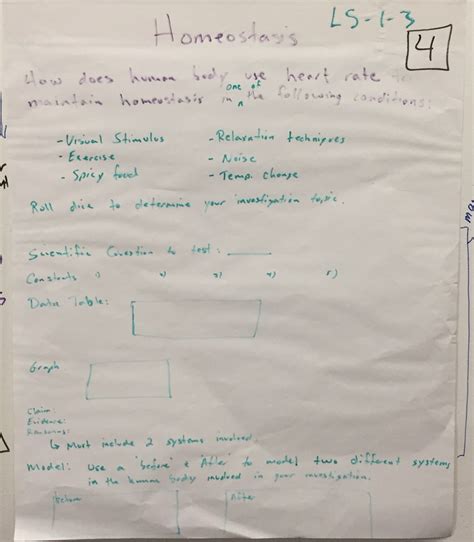 LS-1-3
4
Homeostasis
How does human body use heart rate to
maintain homeostasis in one of the following conditions:
- Visual Stimulus - Relaxation techniques
- Exercise - Noise
- Spicy food - Temp. change
Roll dice to determine your investigation topic.
Scientific Question to test:
Constants 1) 2) 3) 4) 5)
Data Table:
Graph
Claim:
Evidence:
Reasoning:
↳ Must include 2 systems involved.
Model: Use a "before" & "After" to model two different systems
in the human body involved in your investigation.
Before After